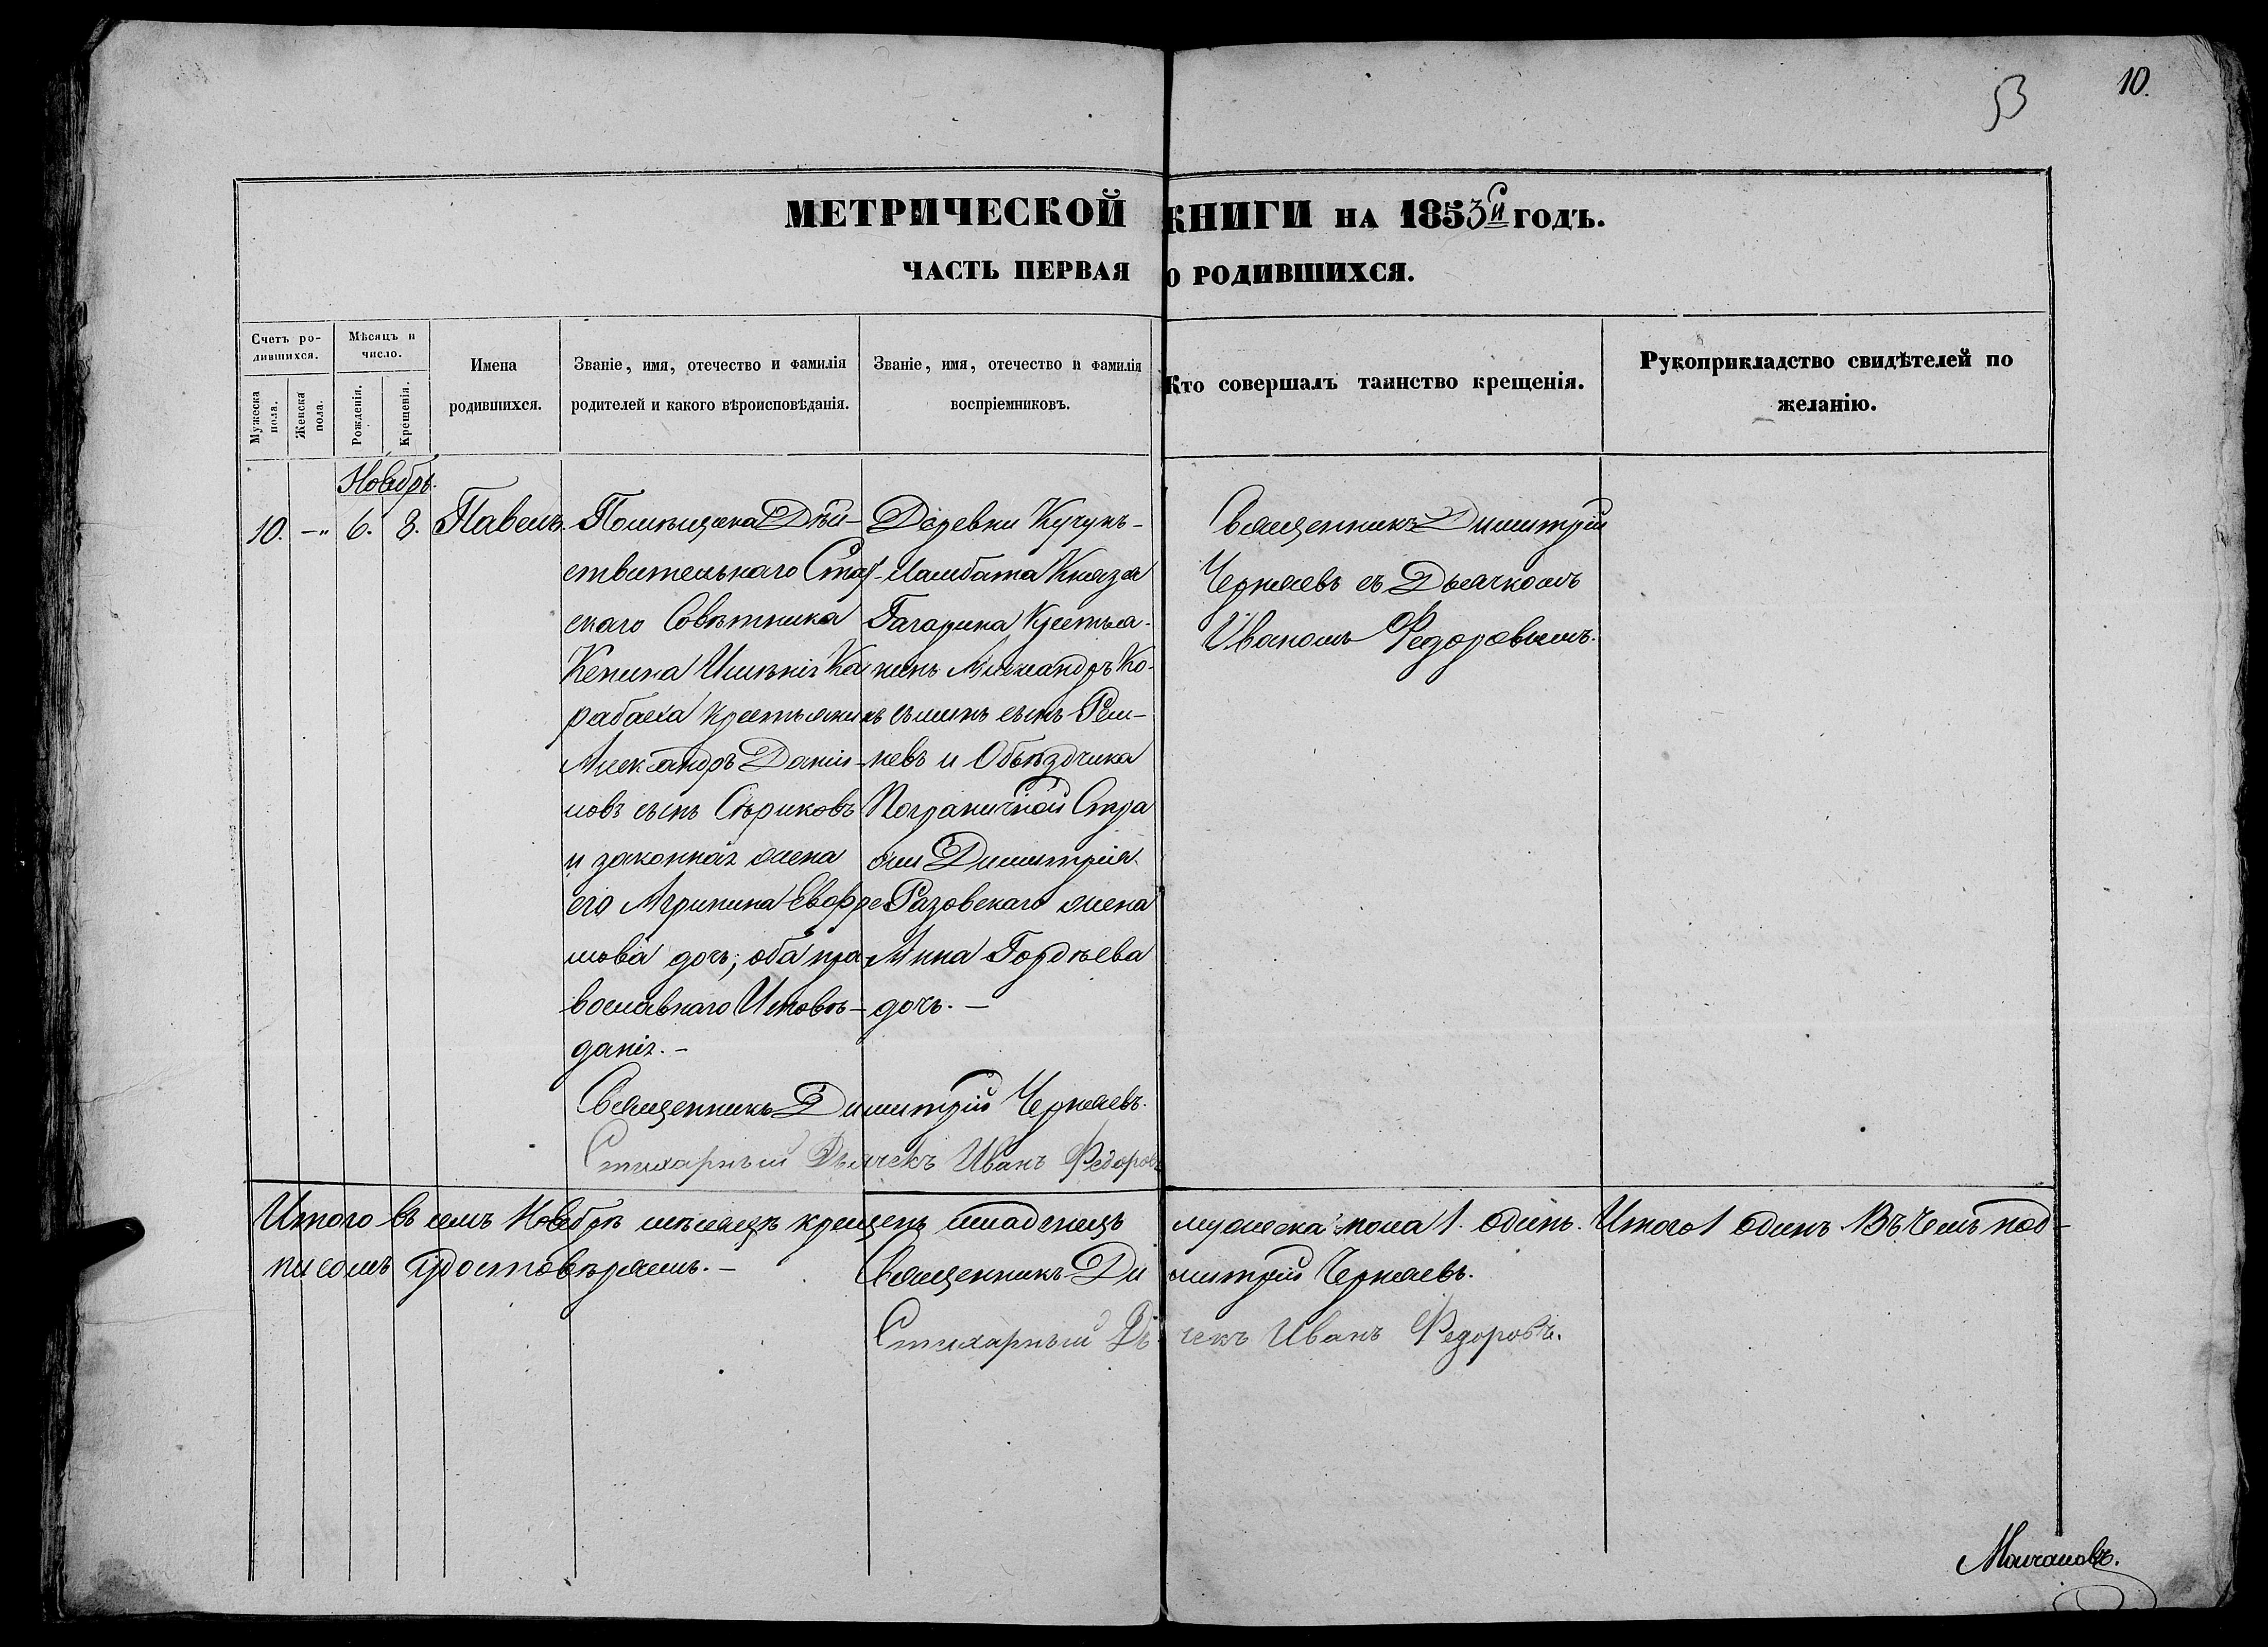 53 10.
МЕТРИЧЕСКОЙ КНИГИ НА 1853й ГОДЪ.
ЧАСТЬ ПЕРВАЯ О РОДИВШИХСЯ.
Счетъ ро-
дившихся.
Мужеска пола.
Женска пола.
Мѣсяцъ и
число.
Рожденія.
Крещенія.
Имена
родившихся.
Званіе, имя, отечество и фамилія
родителей и какого вѣроисповѣданія.
Званіе, имя, отечество и фамилія
воспріемниковъ.
Кто совершалъ таинство крещенія.
Рукоприкладство свидѣтелей по
желанію.
Ноябрь.
10. -„ 6. 8. Павелъ.
Помѣщика Дѣй-
ствительнаго Стат-
скаго Совѣтника
Кепина Имѣнія Ка
рабаха крестьянинъ
Александръ Даніи-
ловъ сынъ Сѣриковъ
и законная жена
его Агрипина Евфре
мова дочь; оба пра
вославнаго Исповѣ-
данія. -
Деревни Кучукъ-
Ламбата Князя
Гагарина Крестья-
нинъ Александръ Ко-
сьминъ сынъ
и Объѣздчика
Пограничной Стра
жи Димитрія
Разовскаго жена
Анна Гордѣева
дочь. -
Священникъ Димитрій
Черняевъ съ Дьячкомъ
Иваномъ Федоровымъ.
Священникъ Димитрій Черняевъ.
Стихарный Дьячекъ Иванъ Федоровъ
Итого въ семъ Ноябрѣ мѣсяцѣ крещенъ младенецъ мужеска пола 1. одинъ. Итого 1 одинъ. Въ чемъ под-
писомъ удостовѣряемъ. - Священникъ Димитрій Черняевъ.
Стихарный Дьячекъ Иванъ Федоровъ.
Молчановъ.